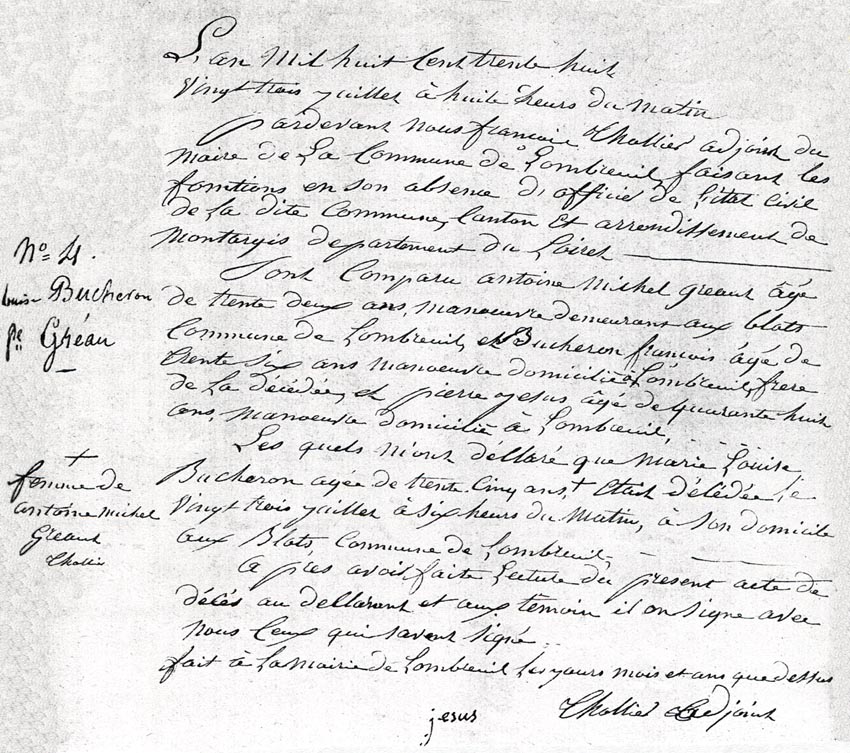 L'an Mil huit Cent trente huit
vingt trois juillet à huite heurs du matin
pardevant nous francois Chollier adjoint du
maire de La Commune de Lombreuil, faisant les
fonctions en son absence d'officié de L'état Civil
de La dite Commune, Canton et arrondissement de
Montargis departement du Loiret
Sont Comparu antoine Michel greaut âgé
de trente deux ans, manoeuvre demeurant aux blats
Commune de Lombreuil, et Bucheron francois âgé de
trente six ans manoeuvre domicilié à Lombreuil, frere
de La décédée, et pierre jesus âgé de quarante huit
ans, manoeuvre domicilié à Lombreuil,
Les quels m'ont déllaré que marie Louise
Bucheron agée de trente Cinq ans, + Etait décédée, le
vingt trois juillet à six heurs du Matin, à son domicile
aux Blats, Commune de Lombreuil,
a pres avoir faite Lecture du present acte de
décés au dellarant et aux temoin il on signe avec
nous Ceux qui savent signé
fait à La mairie de Lombreuil les jours mois et ans que dessus
Chollier adjoint
jesus
No 4.
Louise Bucheron
fe Gréau
+
femme de
antoine Michel
Greaut
Chollier